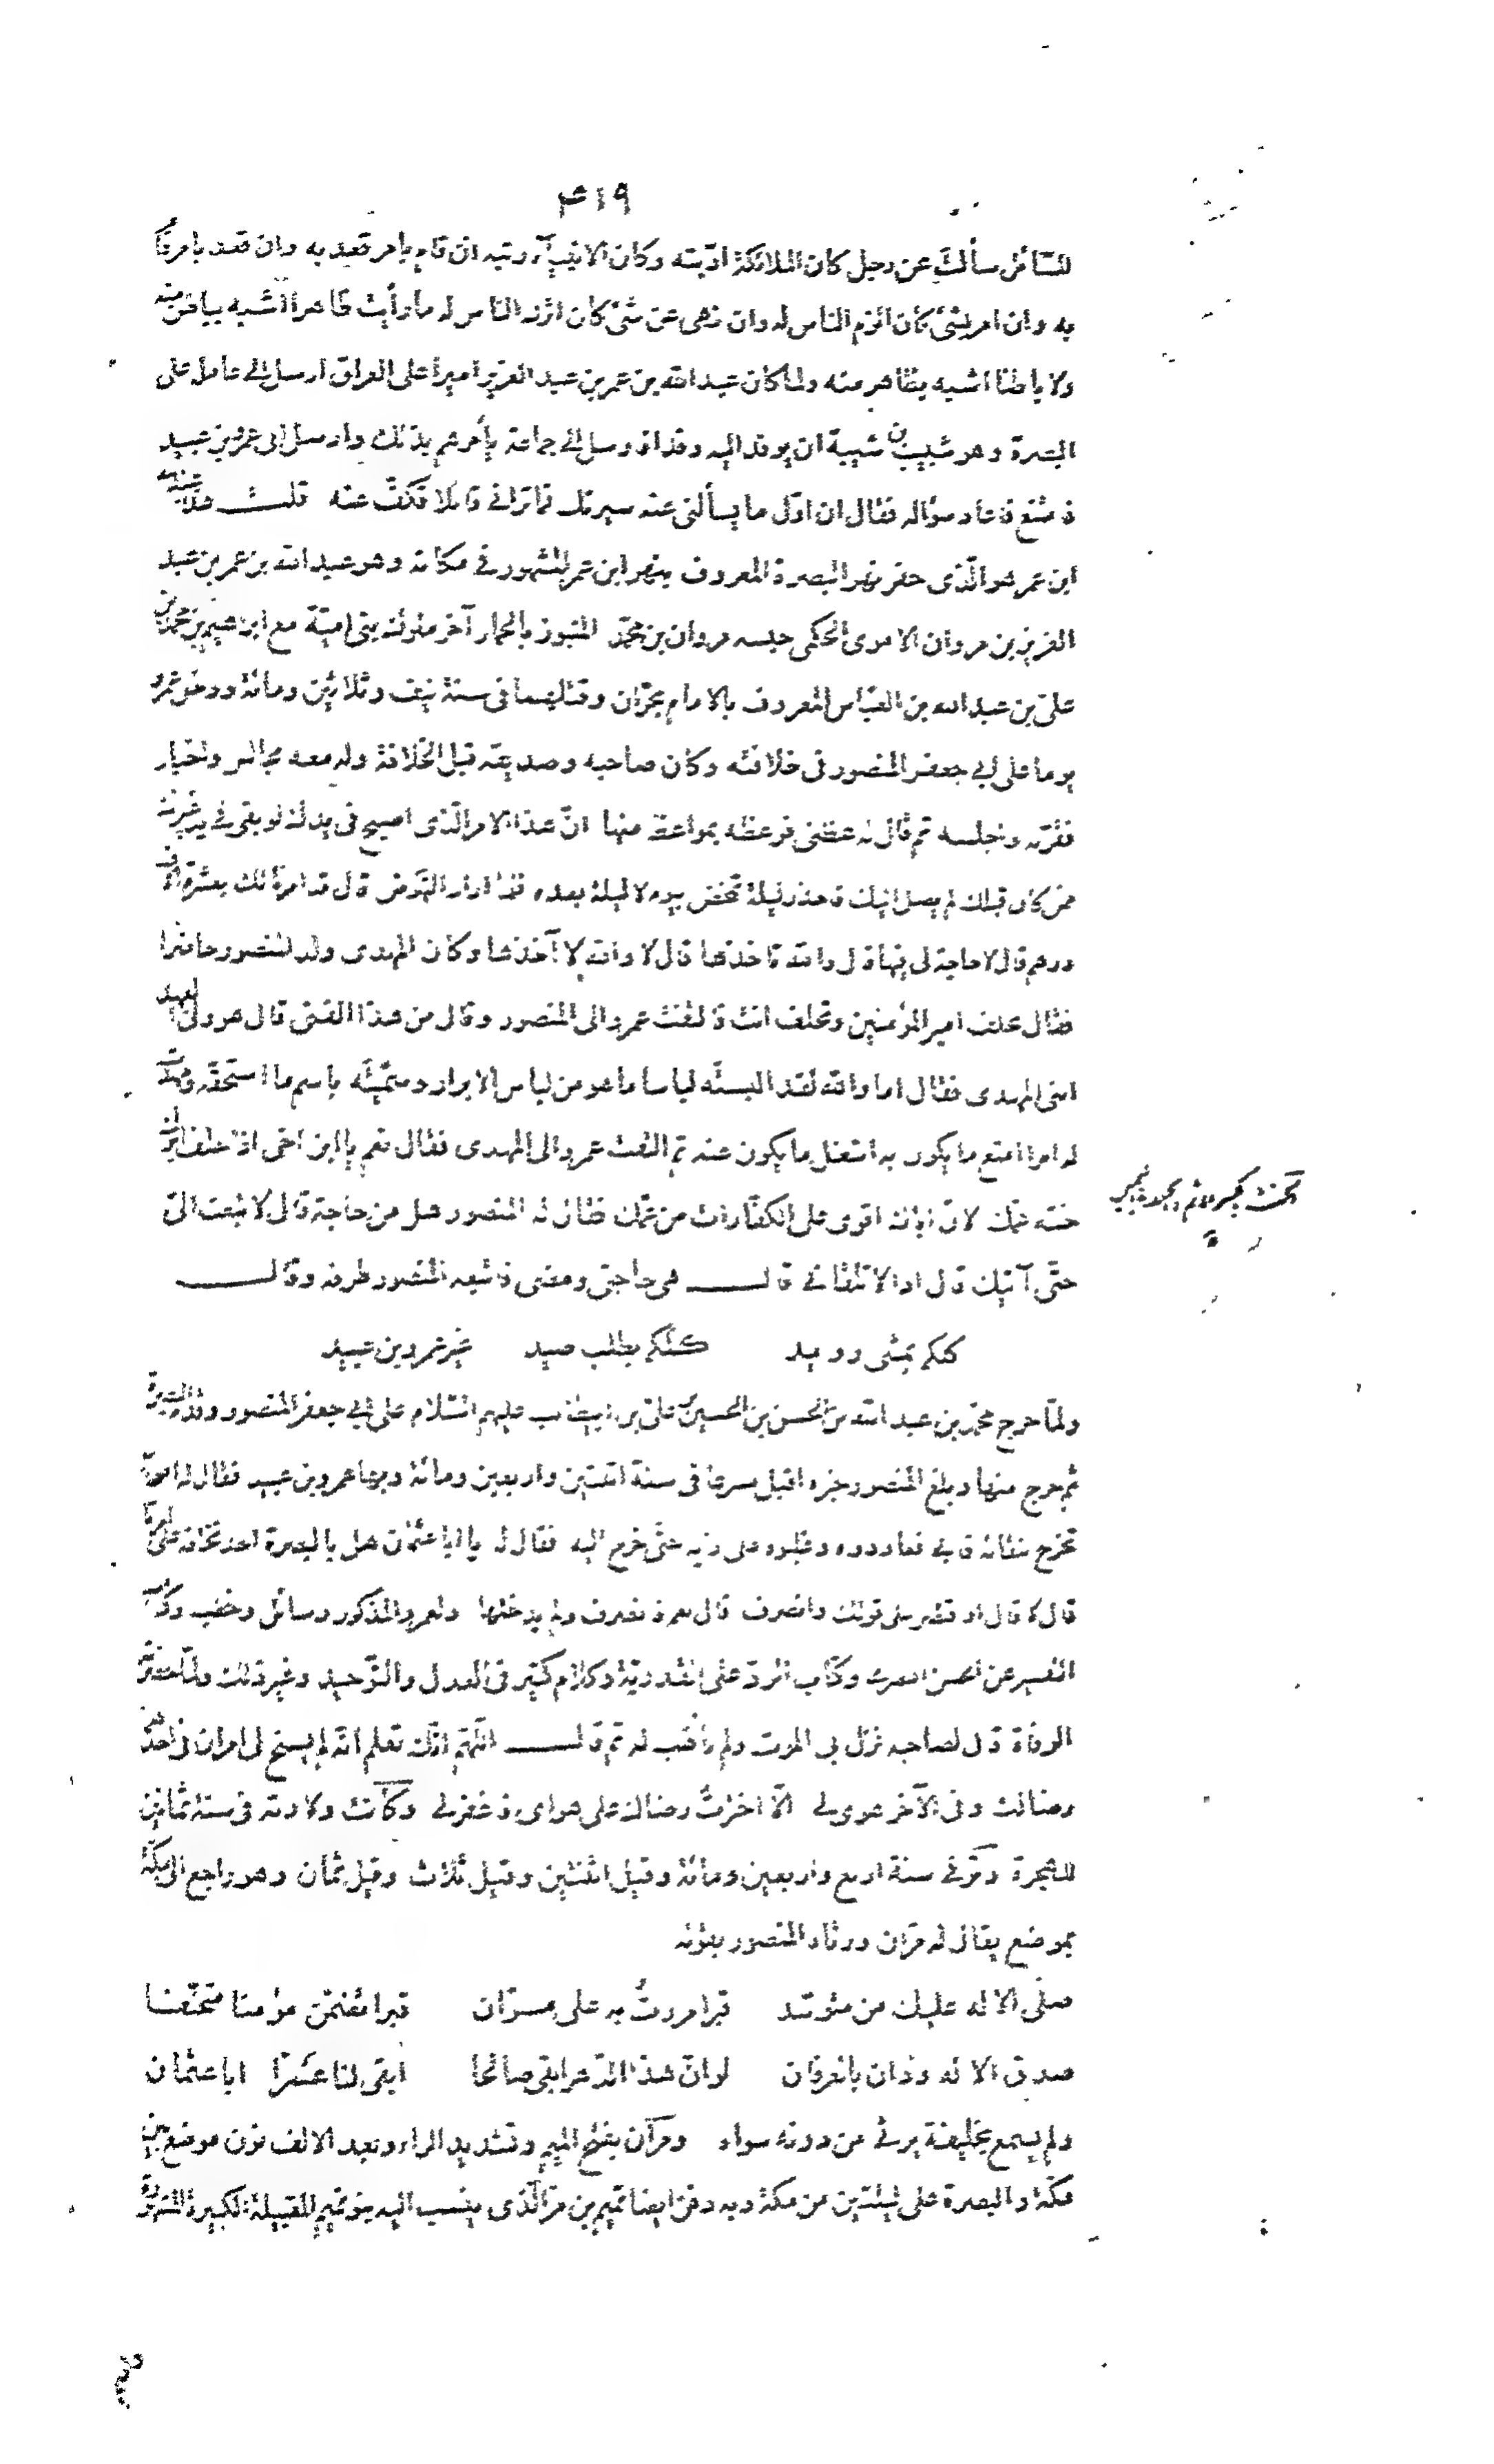 ۴۱۹
للسّائل سألتَ عن رجل كان الملائكة ادّبته وكان الانبياء ربّته ان قام بامر قعد به وان قعد بامر قام
به وان امر بشئ كان الزم الناس له وان نهى عن شئ كان اترك الناس له ما رأيت ظاهرا اشبه بباطن منه
ولا باطنا اشبه بظاهر منه ولما كان عبد الله بن عمر بن عبد العزيز اميرا على العراق ارسل الى عامل على
البصرة وهو شبيب بن شيبة ان يوفد اليه وفدا فارسل الى جماعة يأمرهم بذلك وارسل الى عمرو بن عبيد
فامتنع فاعاد سؤاله فقال ان اوّل ما يسألنى عنه سيرتك فما ترانى قائلا فكفّ عنه قلت عبد الله
ابن عمر هو الّذى حفر نهر البصرة المعروف بنهر ابن عمر المشهور فى مكانه وهو عبد الله بن عمر بن عبد
العزيز بن مروان الاموى الحكمى حبسه مروان بن محمّد المنبوز بالحمار آخر ملوك بنى اميّة مع ابراهيم بن محمّد بن
علىّ بن عبد الله بن العبّاس المعروف بالامام بحرّان وقتلهما فى سنة نيف وثلاثين ومائة ودخل عمرو
يوما على ابى جعفر المنصور فى خلافته وكان صاحبه وصديقه قبل الخلافة وله معه مجالس واخبار
فقرّبه واجلسه ثم قال له عظنى فوعظه بمواعظ منها انّ هذا الامر الّذى اصبح فى يدك لو بقى فى يد غيرك
ممن كان قبلك لم يصل اليك فاحذر ليلة تمخض بيوم لا ليلة بعده فلما اراد النهوض قال قد امرنا لك بعشرة آلاف
درهم قال لا حاجة لى فيها قال والله تاخذها قال لا والله لا آخذها وكان المهدى ولد المنصور حاضرا
فقال يحلف امير المؤمنين وتحلف انت فالتفت عمرو الى المنصور وقال من هذا الفتى قال هو ولىّ العهد
ابنى المهدى فقال اما والله لقد البستَه لباسا ما هو من لباس الابرار وسمّيتَه باسم ما استحقّه ومهّدت
له امرا امتع ما يكون به اشغل ما يكون عنه ثم التفت عمرو الى المهدى فقال نعم يا ابن اخى اذا حلف ابوك
حنّثه عمّك لانّ اباك اقوى على الكفّارات من عمّك فقال له المنصور هل من حاجة قال لا تبعث الىّ
حتّى آتيك قال اذا لا تلقانى قال هى حاجتى ومضى فاتبعه المنصور طرفه وقال
كلكم يمشى رويد كلّكم يطلب صيد غير عمرو بن عبيد
ولمّا خرج محمّد بن عبد الله بن الحسن بن الحسين بن علىّ بن ابيطالب عليهم السّلام على ابى جعفر المنصور البصرة
ثم خرج منها وبلغ المنصور خبره اقبل مسرعا فى سنة اثنتين واربعين ومائة وبها عمرو بن عبيد فقال له
تخرج للقائه فابى فعاودوه وغلبوه على رايه حتّى خرج اليه فقال له يا ابا عثمان هل بالبصرة احد نخافه على امرنا
قال لا قال فاقتصر على قولك وانصرف قال نعم فانصرف ولم يدخلها ولعمرو المذكور رسائل وخطب وكتاب
التفسير عن الحسن البصرى وكتاب الردّ على القدريّة وكلام كثير فى العدل والتّوحيد وغير ذلك ولمّا حضرته
الوفاة قال لصاحبه نزل بى الموت ولم اتأهّب له ثم قال اللّهمّ انّك تعلم انّه لم يسنح لى امران فى احدهما
رضاك وفى الآخر هوى لى الّا اخترتُ رضاك على هواى فاغفر لى وكانت ولادته فى سنة ثمانين
للهجرة وتوفى سنة اربع واربعين ومائة وقيل اثنتين وقيل ثلاث وقيل ثمان وهو راجع الى مكّة
بموضع يقال له مرّان ورثاه المنصور بقوله
صلّى الاله عليك من متوسّد قبرا مررتُ به على مرّان قبرا تضمّن مؤمنا متحنّفا
صدق الاله ودان بالفرقان لو انّ هذا الدّهر ابقى صالحا ابقى لنا عمرًا ابا عثمان
ولم يسمع بخليفة يرثى من دونه سواه ومرّان بفتح الميم وتشديد الراء وبعد الالف نون موضع بين
مكّة والبصرة على ليلتين من مكّة وبه دفن ايضا تميم بن مرّ الّذى ينسب اليه بنو تميم القبيلة الكبيرة المشهورة